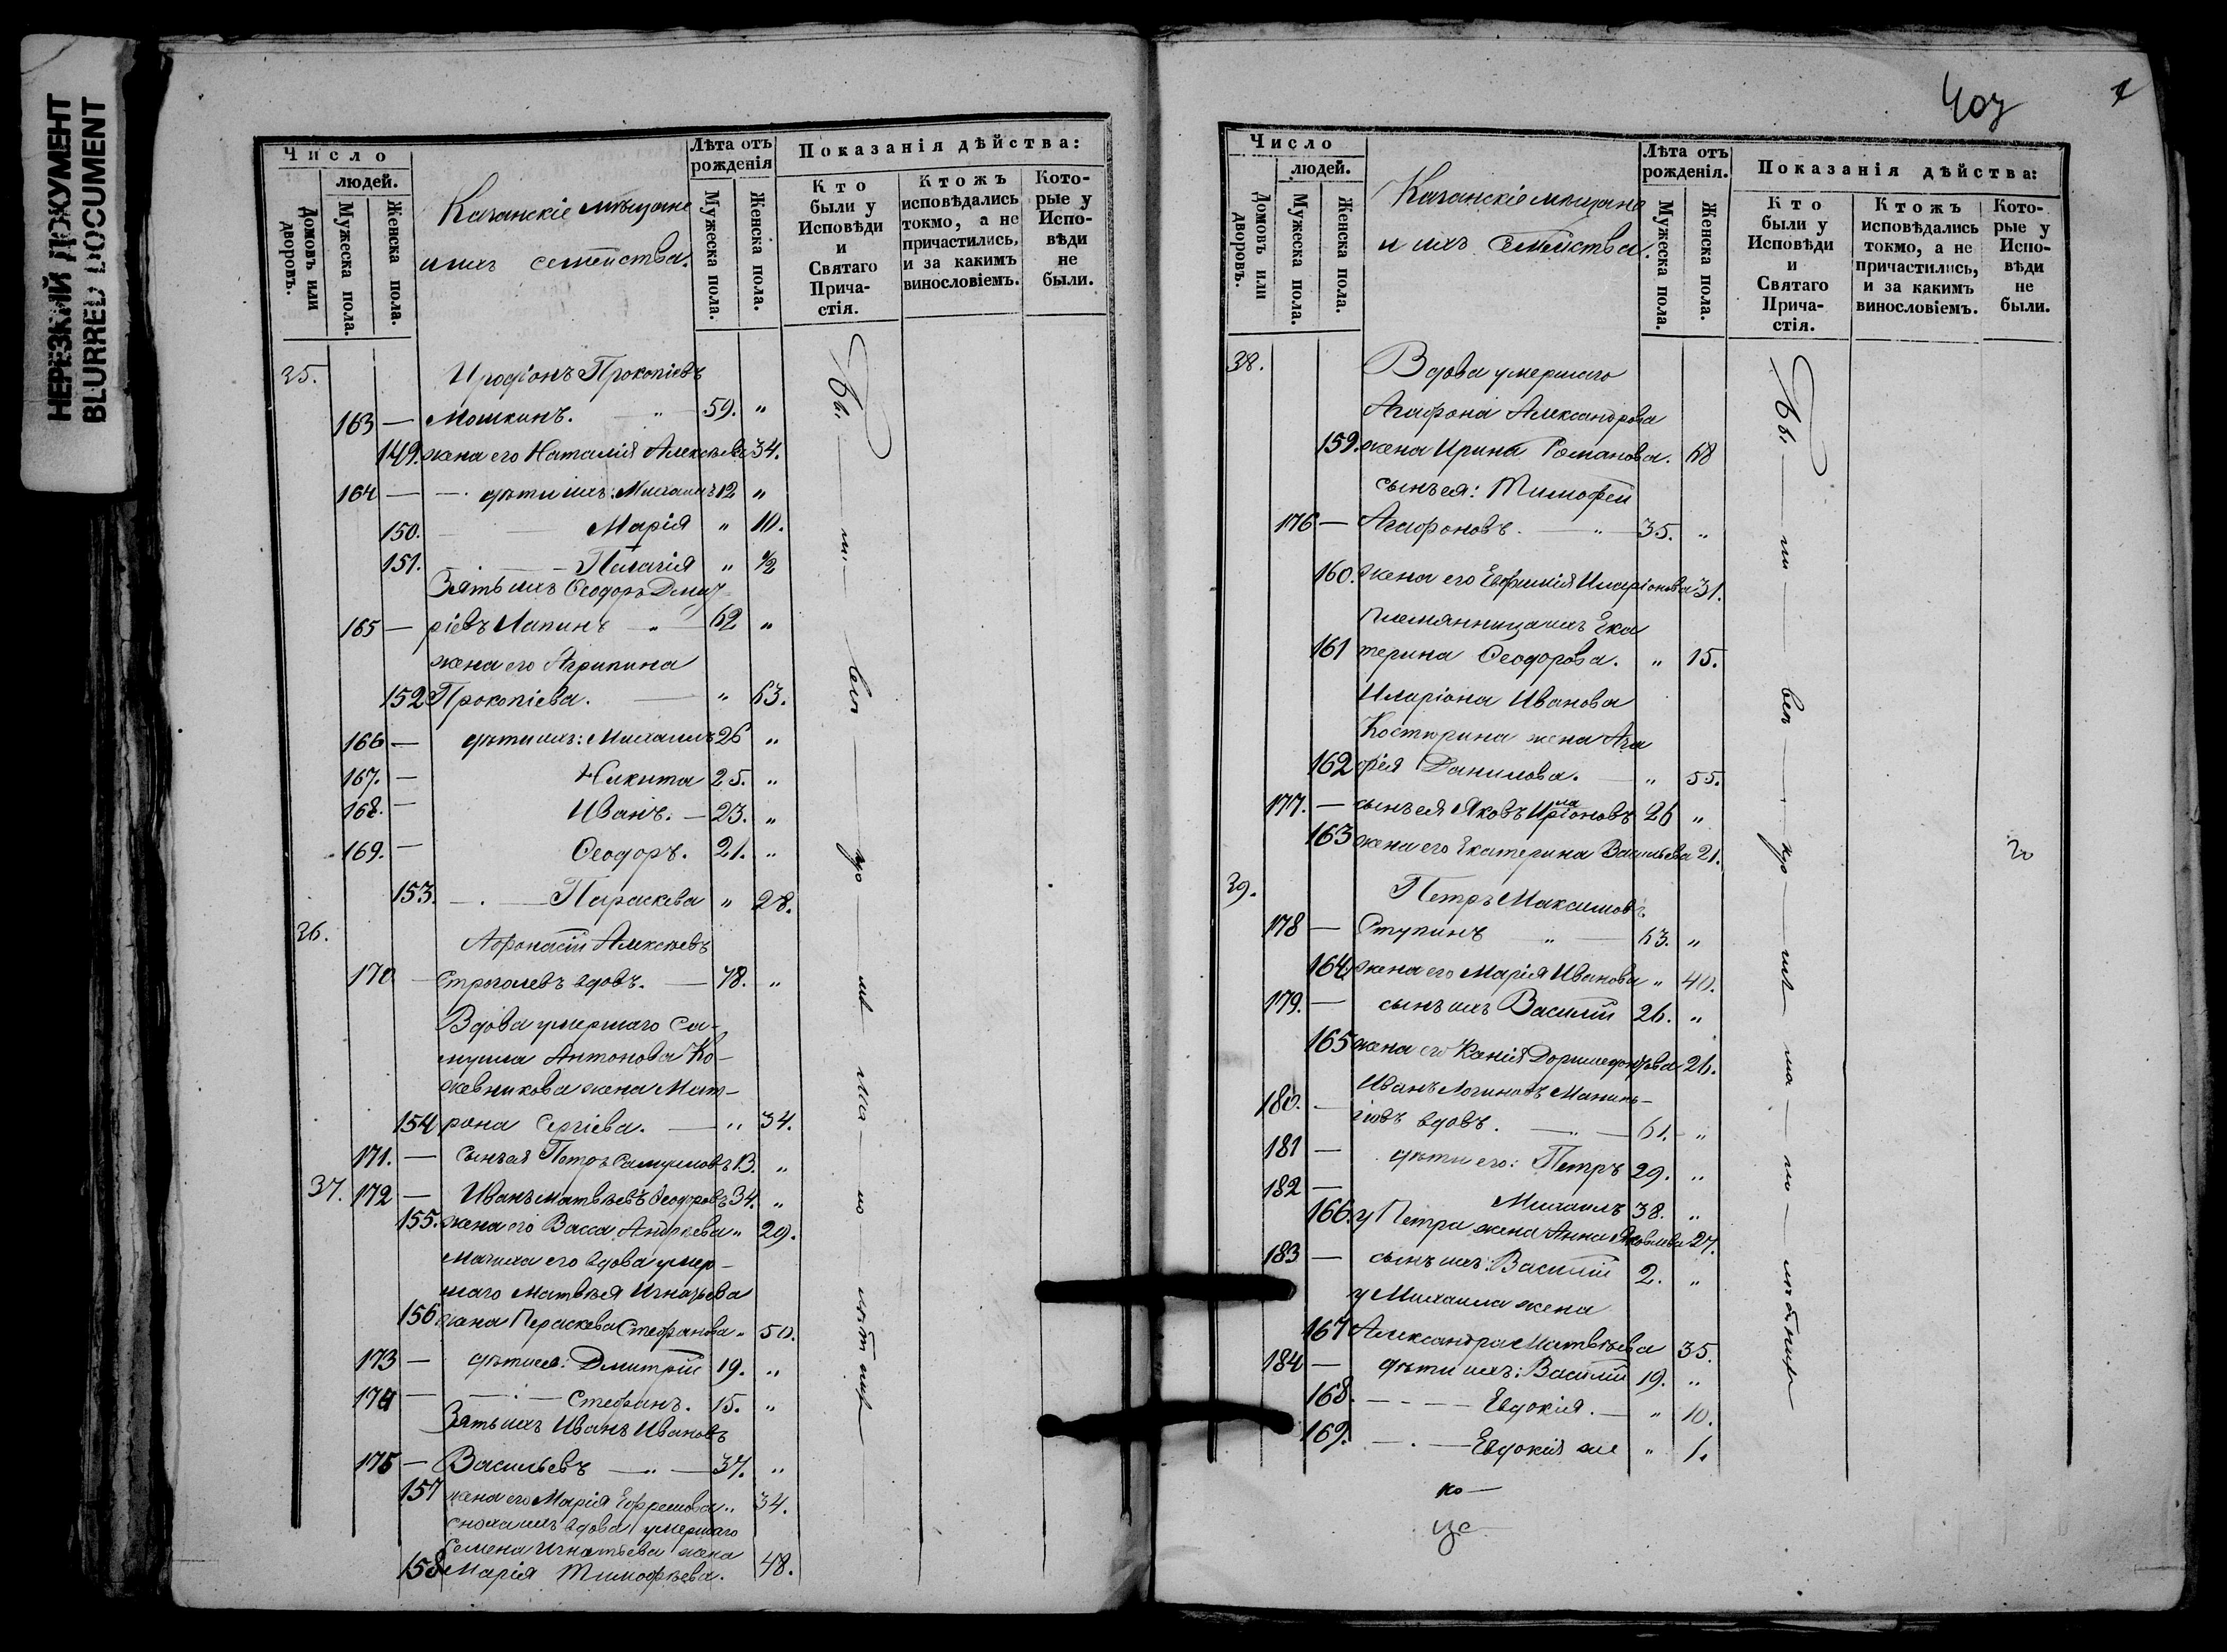 НЕРЕЗКИЙ ДОКУМЕНТ
BLURRED DOCUMENT
Число
людей.
Домовъ или дворовъ.
Мужеска пола.
Женска пола.
Казанскіе мѣщане
и ихъ семейства.
Лѣта отъ рожденія
Мужеска пола.
Женска пола.
Показанія дѣйства:
Кто были у Исповѣди и Святаго Прича-стія.
Ктожъ исповѣдались токмо, а не причастились, и за какимъ винословіемъ.
Кото-рые у Испо-вѣди не были.
35. Иродіонъ Прокопіевъ
163 — Мошкинъ. " 59. "
149. жена его Наталія Алексѣева 34.
164 — дѣти ихъ: Михаилъ 12 "
150. Марія " 10.
151. Пелагія " 1/2
Зять ихъ Ѳеодоръ Дмит-
165 — ріевъ Лапинъ " 62 "
жена его Агрипина
152 Прокопіева. " 63.
166 — дѣти ихъ: Михаилъ 26 "
167. — Никита 25. "
168. — Иванъ. — 23. "
169. — Ѳеодоръ. 21. "
153. Параскева " 28.
36. Афонасій Алексѣевъ
170 — вдовъ. — 78. "
Вдова умершаго Са-
муила Антонова Ко-
жевникова жена Мат-
154 рона Сергіева. — " 34.
171. — Сынъ ея Петръ Самуиловъ 13. "
37. 172 — Иванъ Матвѣевъ Ѳеодоровъ 34. "
155. жена его Васса Андреева " 29.
Мачиха его вдова умер-
шаго Матвѣя Игнатьева
156 жена Параскева Стефанова " 50.
173 — дѣти ея: Дмитрій 19. "
174 — Стефанъ. 15. "
Зять ихъ Иванъ Ивановъ
175 — Васильевъ — " — 37. "
157 жена его Марія Ефремова " 34.
Сноха ихъ вдова умершаго
Семена Игнатьева жена
158 Марія Тимофѣева. 48.
407
Число
людей.
Домовъ или дворовъ.
Мужеска пола.
Женска пола.
Казанскіе мѣщане
и ихъ семейства.
Лѣта отъ рожденія.
Мужеска пола.
Женска пола.
Показанія дѣйства:
Кто были у Исповѣди и Святаго Прича-стія.
Ктожъ исповѣдались токмо, а не причастились, и за какимъ винословіемъ.
Кото-рые у Испо-вѣди не были.
38. Вдова умершаго
Агафона Александрова
159. жена Ирина Романова. 68
сынъ ея: Тимофей
176 — Агафоновъ. — " — 35. "
160. жена его Евфимія Иларіонова 31.
племянница ихъ Ека
161 терина Ѳеодорова. " 15.
Иларіона Иванова
Костюрина жена Ага
162 фія Данилова. — " 55.
177. — сынъ ея Яковъ Иларіоновъ 26 "
163 жена его Екатерина Васильева 21.
39. Петръ Максимовъ
178 — Ступинъ " 63. "
164 жена его Марія Иванова " 40.
179. — сынъ ихъ Василій 26. "
165 жена его 26.
180. — Иванъ Логиновъ
вдовъ. — " — 61. "
181 — дѣти его: Петръ 29. "
182 — Михаилъ 38. "
166. у Петра жена Анна Яковлева 27.
183 — сынъ ихъ: Василій 2. "
у Михаила жена
167 Александра Матвѣева 35.
184 — дѣти ихъ: Василій 19. "
168. — Евдокія. — " 10.
169. — Евдокія же " 1.